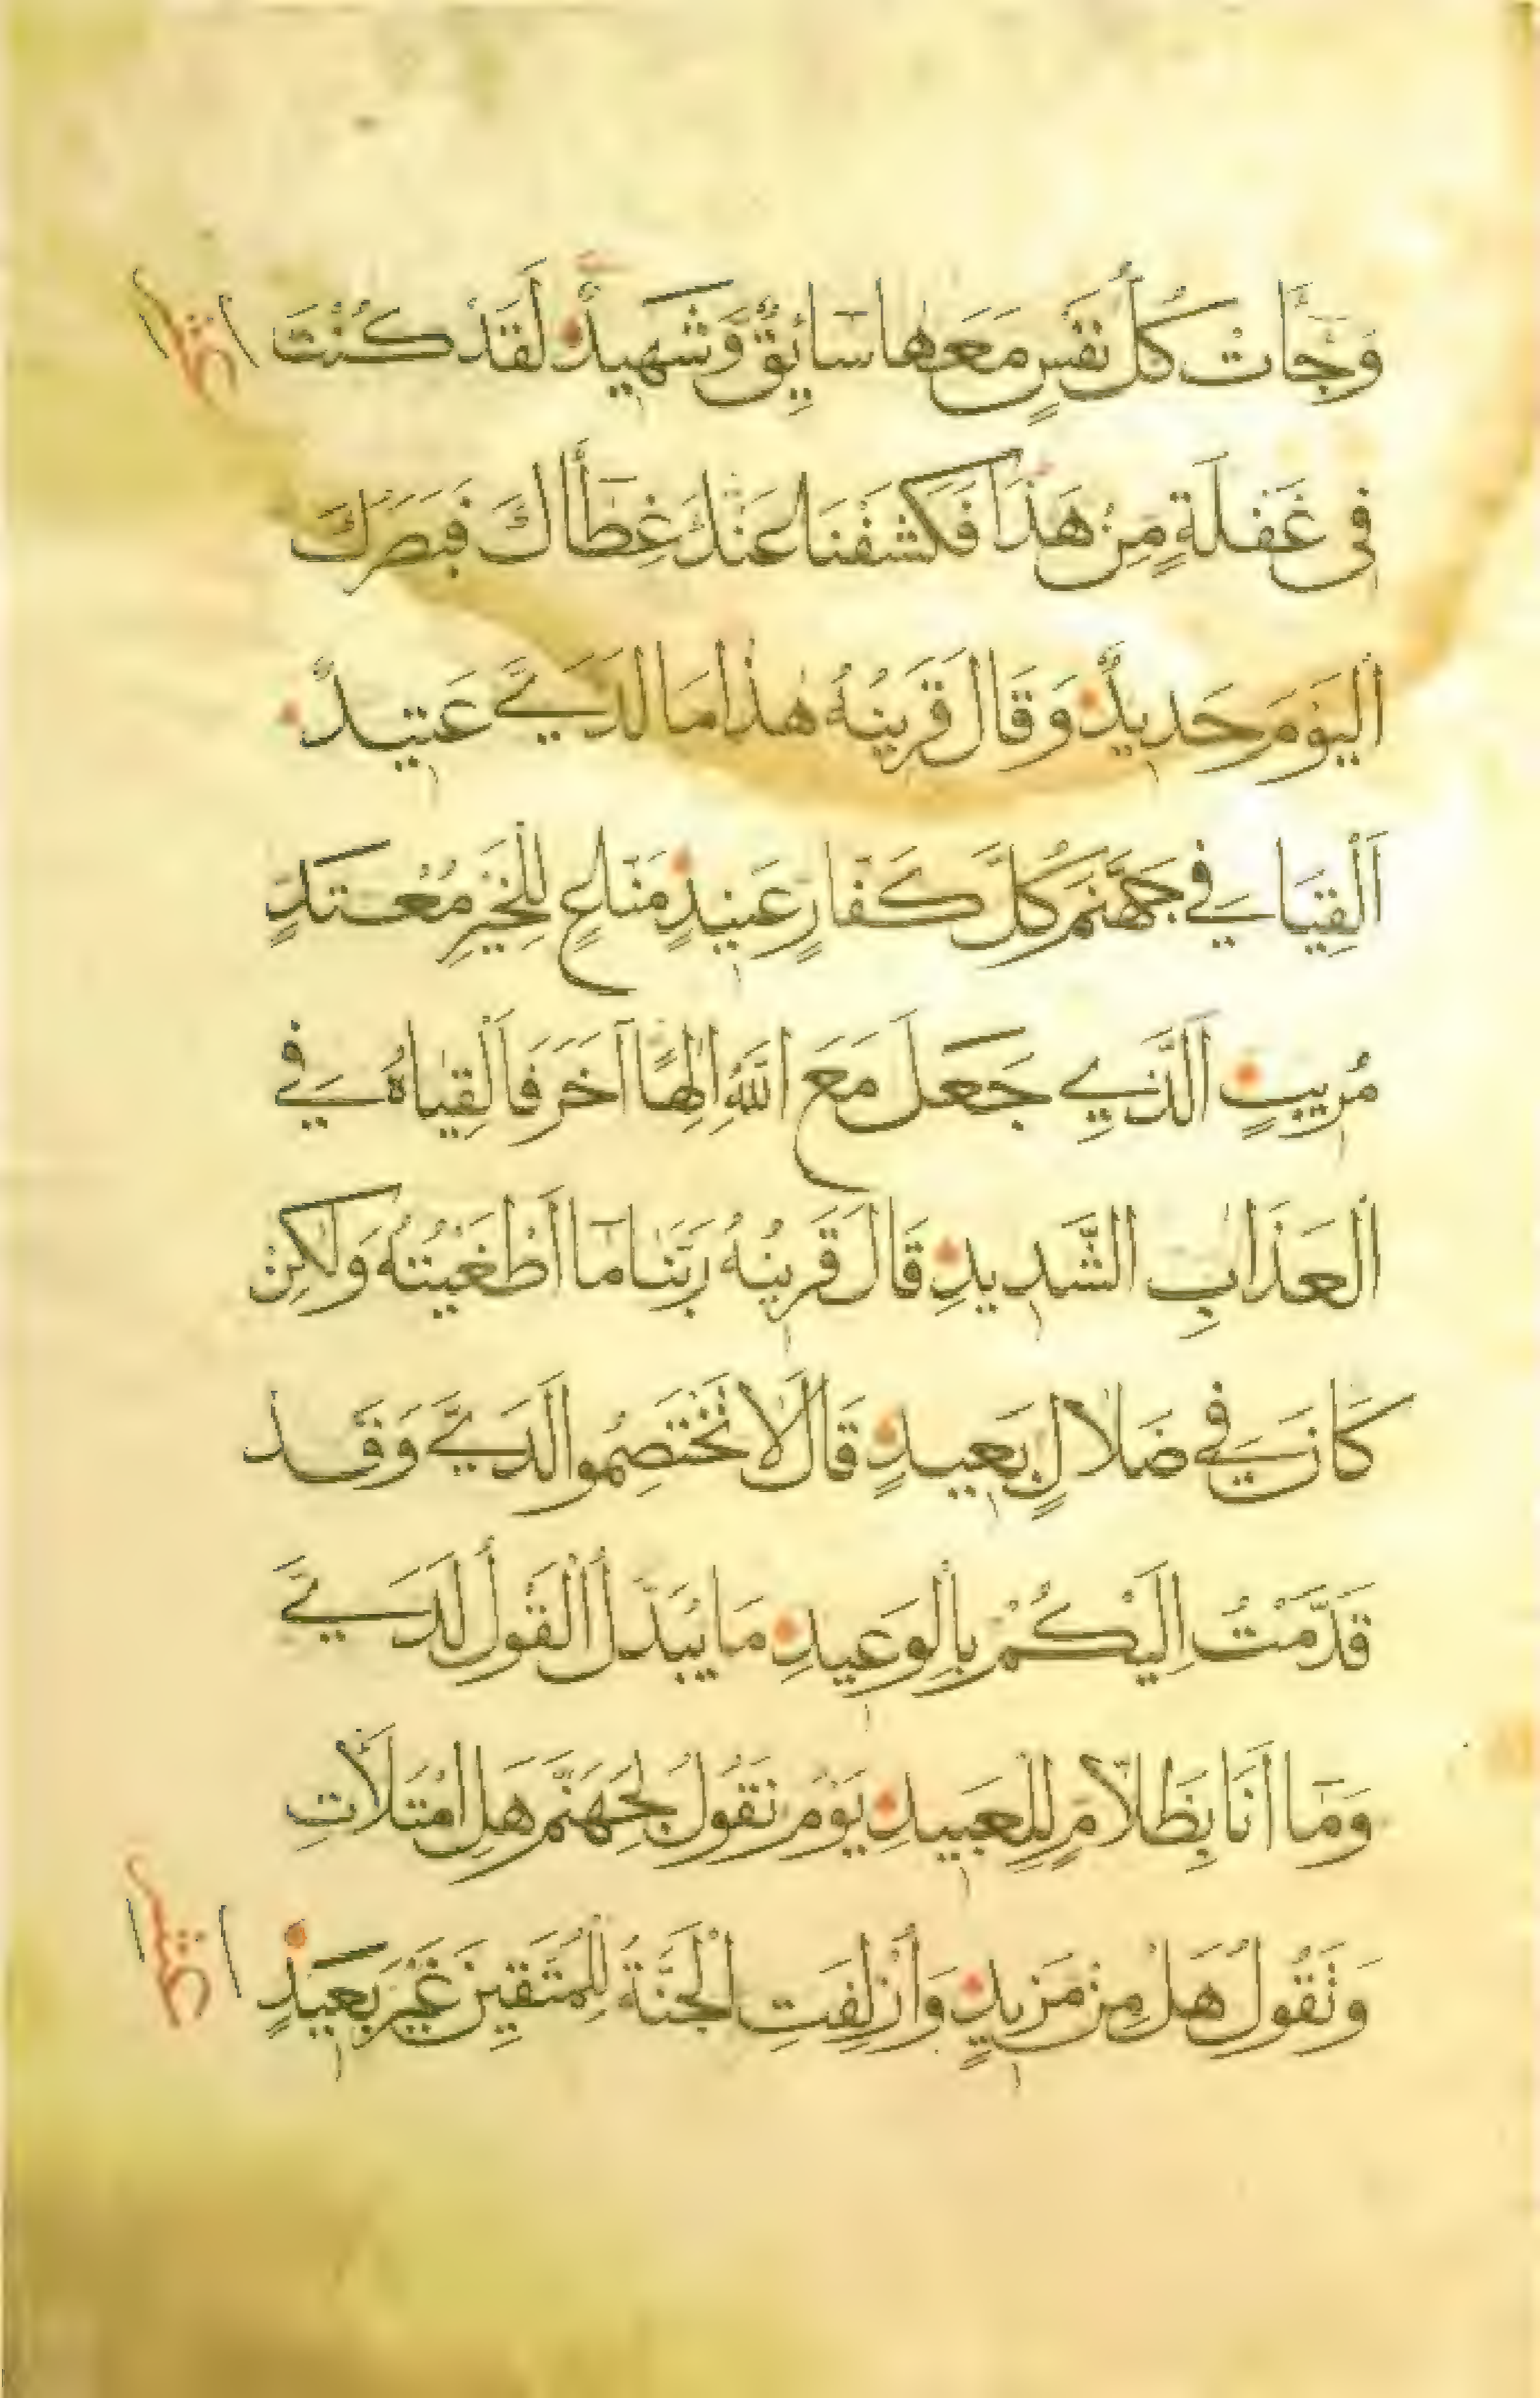 وَجَّاتْ كُلُّ نَفْسٍ مَعَهَا سَآيِقٌ وَشَهِيدٌ لَقَدْ كُنْتَ
فِى غَفْلَةٍ مِنْ هَذَا فَكَشَفْنَا عَنْكَ غِطَآأَكَ فَبَصَرُكَ
الْيَوْمَ حَدِيدٌ وَقَالَ قَرِينُهُ هَذَا مَا لَدَيَّ عَتِيدٌ
أَلْقِيَا فِي جَهَنَّمَ كُلَّ كَفَّارٍ عَنِيدٍ مَنَّاعٍ لِلْخَيْرِ مُعْتَدٍ
مُرِيبٍ الَّذِي جَعَلَ مَعَ اللَّهِ إِلَهًا آخَرَ فَأَلْقِيَاهُ فِي
الْعَذَابِ الشَّدِيدِ قَالَ قَرِينُهُ رَبَّنَا مَآ أَطْغَيْتُهُ وَلَكِنْ
كَانَ فِي ضَلَالٍ بَعِيدٍ قَالَ لَا تَخْتَصِمُوا لَدَيَّ وَقَدْ
قَدَّمْتُ إِلَيْكُمْ بِالْوَعِيدِ مَا يُبَدَّلُ الْقَوْلُ لَدَيَّ
وَمَآ أَنَا بِظَلَّامٍ لِلْعَبِيدِ يَوْمَ نَقُولُ لِجَهَنَّمَ هَلِ امْتَلَأْتِ
وَتَقُولُ هَلْ مِنْ مَزِيدٍ وَأُزْلِفَتِ الْجَنَّةُ لِلْمُتَّقِينَ غَيْرَ بَعِيدٍ